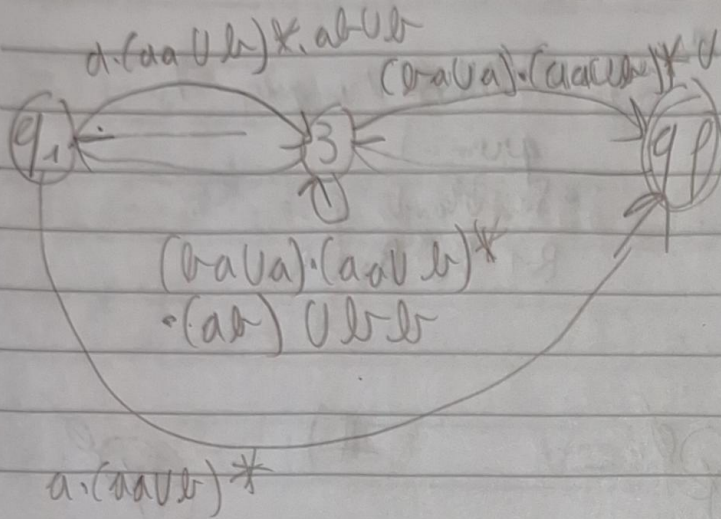 a·(aa∪b)*·ab∪b
(ba∪a)·(aa∪b)*∪
q1
3
qf
(ba∪a)·(aa∪b)*
·(ab) ∪ bb
a·(aa∪b)*